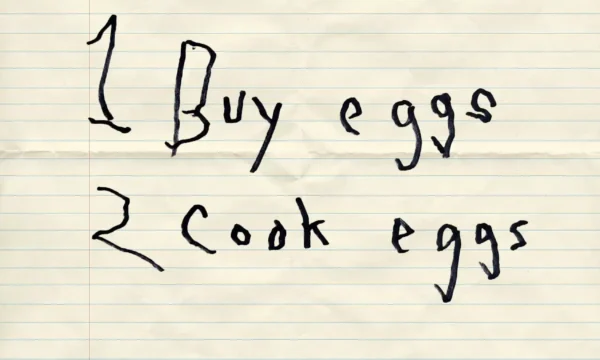 1 Buy eggs
2 Cook eggs